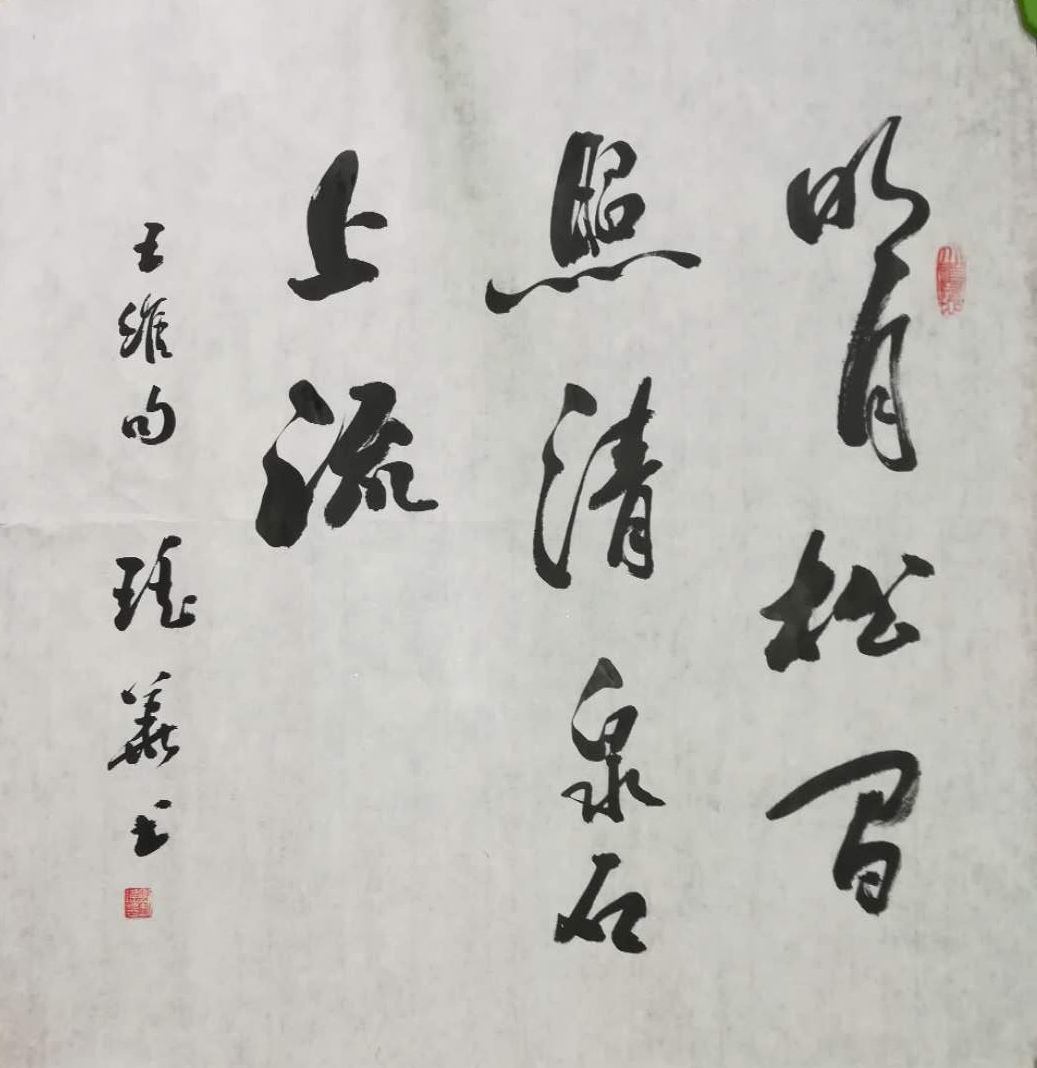 明月松间
照清泉石
上流
王维句 瑶华书